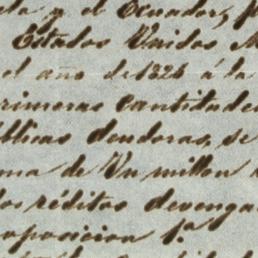 la y el Ecuador, p
Estados Unidos M
el año de 1826 á la
rimeras cantidade
blicas deudoras, se
ma de Un millon
los réditos devenga
oposicion 1ª